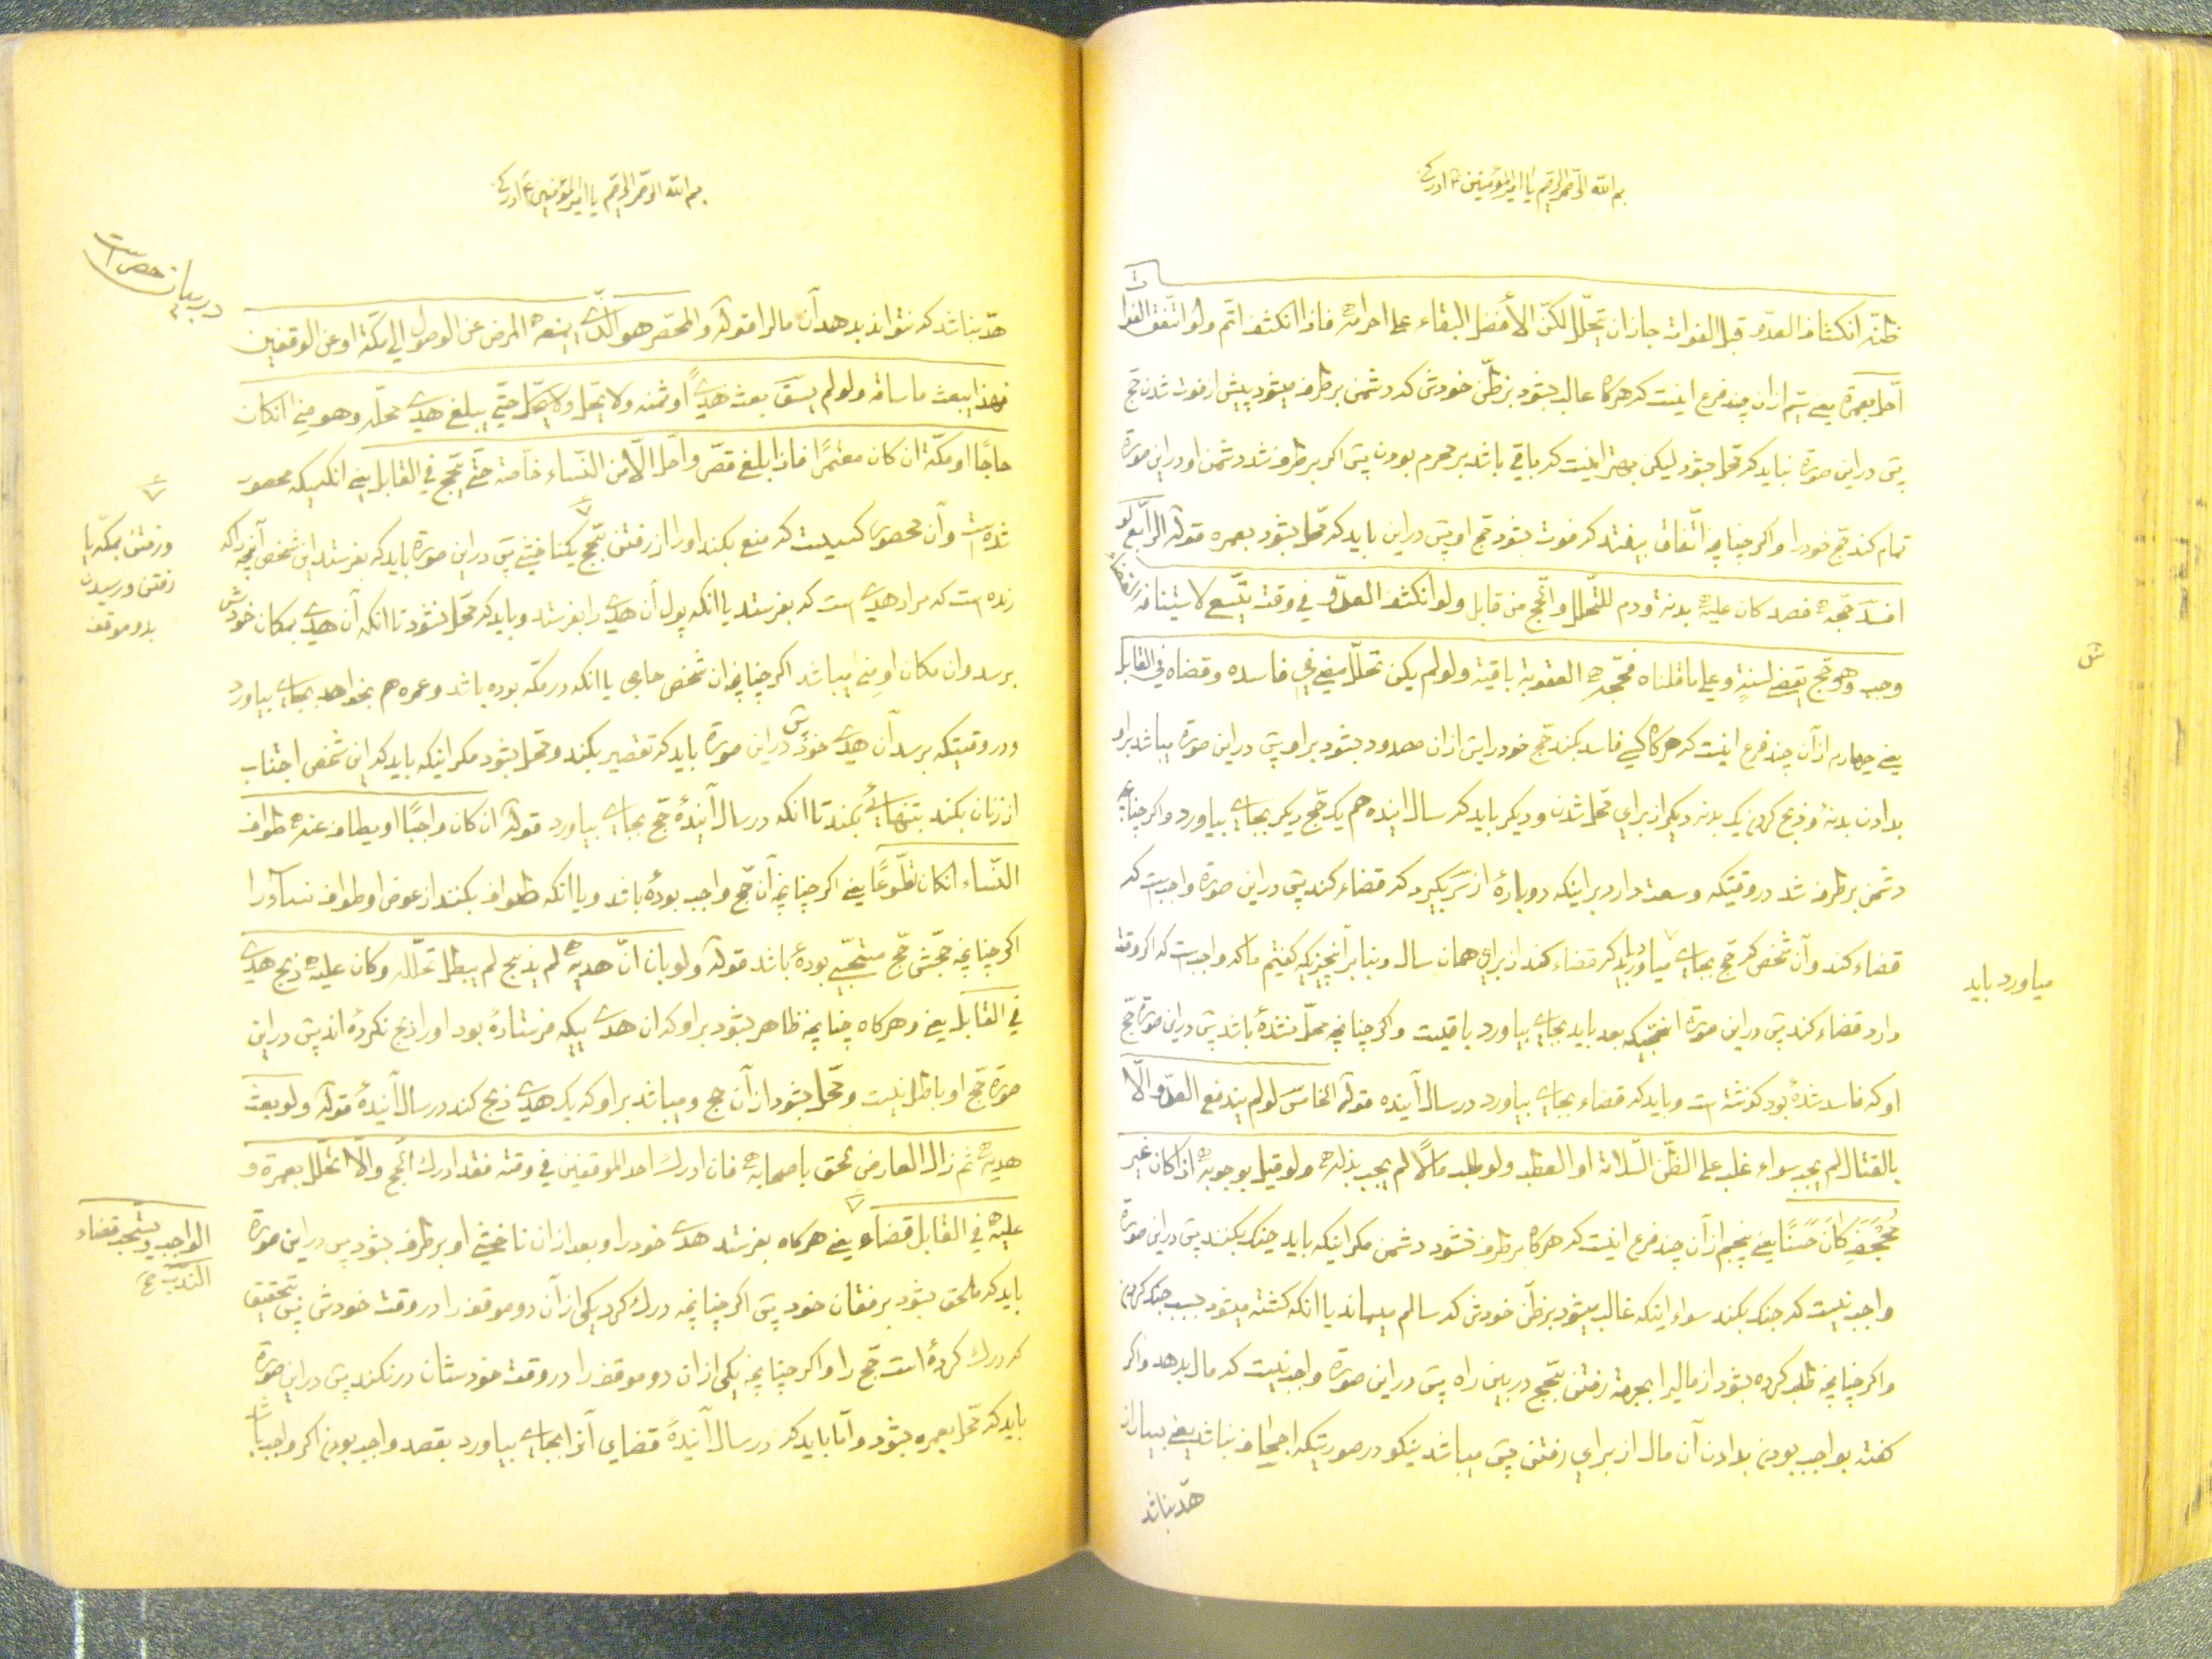 بسم الله الرحمن الرحیم یا امیرالمؤمنین ادرکنی
ظنه انکشاف العدو قبل الفوات جاز ان یتحلل لکن الأفضل البقاء علی احرامه فاذا انکشف اتم ولو اتفق الفوات
احل بعمرة یعنی سیم ازان چند فرع اینست که هرگاه غالب بشود بر ظن خودش که دشمن برطرف میشود پیش از فوت شدن حج
پس در این صورة نباید که محل بشود لیکن بهتر اینست که باقی باشد بر محرم بودن پس اکر برطرف شد دشمن او در این صورة
تمام کند حج خود را و اکر چنانچه اتفاق بیفتد که فوت بشود حج او پس در این باید که محل بشود بعمره قوله الرابع لو
افسد حجه فصد کان علیه بدنة و دم للتحلل والحج من قابل ولو انکشف العدو فی وقت یتسع لاستیناف القضاء
وجب وهو حج یقضی لسنته وعلی ما قلناه فحجة العقوبة باقیة ولو لم یکن تحلل مضی فی فاسده وقضاه فی القابل
یعنی چهارم از آن چند فرع اینست که هرکاه کسی فاسد بکند حج خود را پس ازان مصدود بشود بر او پس در این صورة میباشد بر او
بدادن بدنهٔ و ذبح کردن یک بدنه دیکر از برای محل شدن و دیکر باید که سال اینده هم یک حج دیکر بجای بیاورد و اکر چنانچه
دشمن برطرف شد در وقتیکه وسعت دارد بر اینکه دوبارهٔ از سر بکیرد که قضاء کند پس در این صورة واجبست که
قضاء کند و آن شخص که حج بجای میاورد باید که قضاء کند از برای همان سال و بنا بر آنچیزیکه کفتیم ما که واجبست که اکر وقت
میاورد باید
دارد قضاء کند پس در این صورة انحجیکه بعد باید بجای بیاورد باقیست و اکر چنانچه محل نشدهٔ باشد پس در این صورة حج
او که فاسد شدهٔ بود کذشته است و باید که قضاء بجای بیاورد در سال آینده قوله الخامس لو لم یندفع العدو الا
بالقتال لم یجب سواء غلب علی الظن السلامة او العطب ولو طلب مالا لم یجب بذله ولو قیل بوجوبه اذا کان غیر
مجحف کان حسنا یعنی پنجم از آن چند فرع اینست که هرکاه برطرف نشود دشمن مکر اینکه باید جنک بکنند پس در این صورة
واجب نیست که جنک بکند سواء اینکه غالب میشود بر ظن خودش که سالم میماند یا انکه کشته میشود بسبب جنک کردن
و اکر چنانچه طلب کرده بشود از مالیرا بجهة رفتن بحج در بین راه پس در این صورة واجب نیست که مال بدهد و اکر
کفته بواجب بودن بدادن آن مال از برای رفتن پس میباشد نیکو در صورتیکه اجحاف نباشد یعنی
هد نباشد
بسم الله الرحمن الرحیم یا امیرالمؤمنین ادرکنی
در بیان حصر است
هد نباشد که نتواند بدهد آن مال را قوله والمحصر هو الذی یمنعه المرض عن الوصول الی مکة او عن الموقفین
فهذا یبعث ما ساقه ولو لم یسق بعث هدیا او ثمنه ولا یحل حتی یبلغ هدی محله وهو منی ان کان
حاجا او مکة ان کان معتمرا فاذا بلغ قصر واحل الا من النساء خاصة حتی یحج فی القابل یعنی انکسیکه محصور
شدهست و آن محصور کسیست که منع بکند او را از رفتن بحج یکناخشی پس در این صورة باید که بفرستد این شخص آنچه راکه
و رفتن بمکه یا
رفتن و رسیدن
بدو موقف
زده است که مراد هدی است که بفرستد یا انکه پول آن هدی را بفرستد و باید که محل نشود تا انکه آن هدی بمکان خودش
برسد و ان مکان او منی میباشد اکر چنانچه ان شخص حاجی یا انکه در مکه بوده باشد و عمره هم بخواهد بجای بیاورد
و در وقتیکه برسد آن هدی خودش در این صورة باید که تقصیر بکند و محل بشود مکر اینکه باید که این شخص اجتناب
از زنان بکند بتنهائی بکند تا انکه در سال آیندهٔ حج بجای بیاورد قوله ان کان واجبا او یطاف عنه طواف
النساء انکان تطوعا یعنی اکر چنانچه آن حج واجب بودهٔ باشد و یا انکه طواف بکنند از عوض او طواف نساء را
اکر چنانچه حجش حج مستحبی بودهٔ باشد قوله ولو بان ان هدیه لم یذبح لم یبطل تحلله وکان علیه ذبح هدی
فی القابل یعنی و هرکاه چنانچه ظاهر بشود بر او که ان هدی ییکه فرستادهٔ بود او را ذبح نکردهٔ اند پس در این
صورة حج او باطل نیست و محل بشود از آن حج و میباشد بر او که یک هدی ذبح کند در سال آیندهٔ قوله ولو بعث
هدیه ثم زال العارض لحق باصحابه فان ادرک احد الموقفین فی وقته فقد ادرک الحج والا تحلل بعمرة و
علیه فی القابل قضاء یعنی هرکاه بفرستد هدی خود را و بعد از ان ناخشی او برطرف بشود پس در این صورة
الواجب ویستحب قضاء
الندب
باید که ملحق بشود برفقان خود پس اکر چنانچه درک کرد یکی از آن دو موقف را در وقت خودش پس بتحقیق
که درک کردهٔ است حج را و اکر چنانچه یکی از ان دو موقف را در وقت خودشان درنکند پس در این صورة
باید که محل بعمره بشود و اما باید که در سال آیندهٔ قضای آنرا بجای بیاورد بقصد واجب بودن اکر واجب باشد